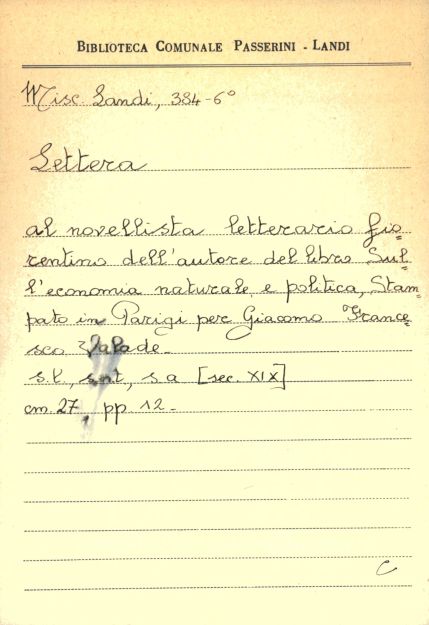 BIBLIOTECA COMUNALE PASSERINI - LANDI
Misc. Landi, 384-6°
Lettera
al novellista letterario fio=
rentino dell'autore del libro Sul=
l'economia naturale e politica, Stam=
pato in Parigi per Giacomo France=
sco Valade.
s.l., s.n.t., s.a. [sec. XIX]
cm. 27, pp. 12.
C